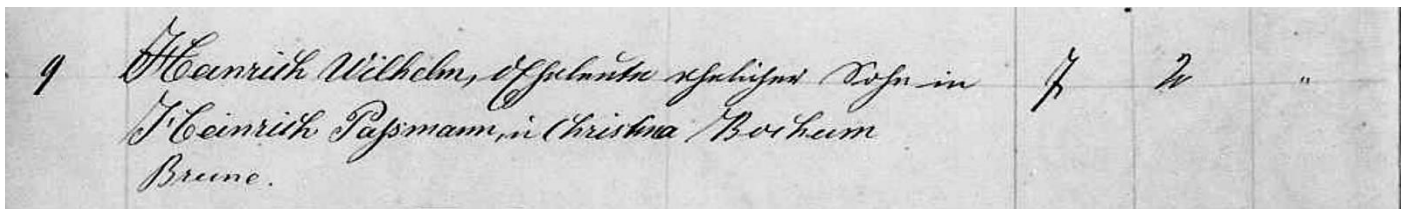 9 Heinrich Wilhelm, Eheleute ehelicher Sohn in 7 2 "
Heinrich Paßmann, u Christina Bochum
Brune.